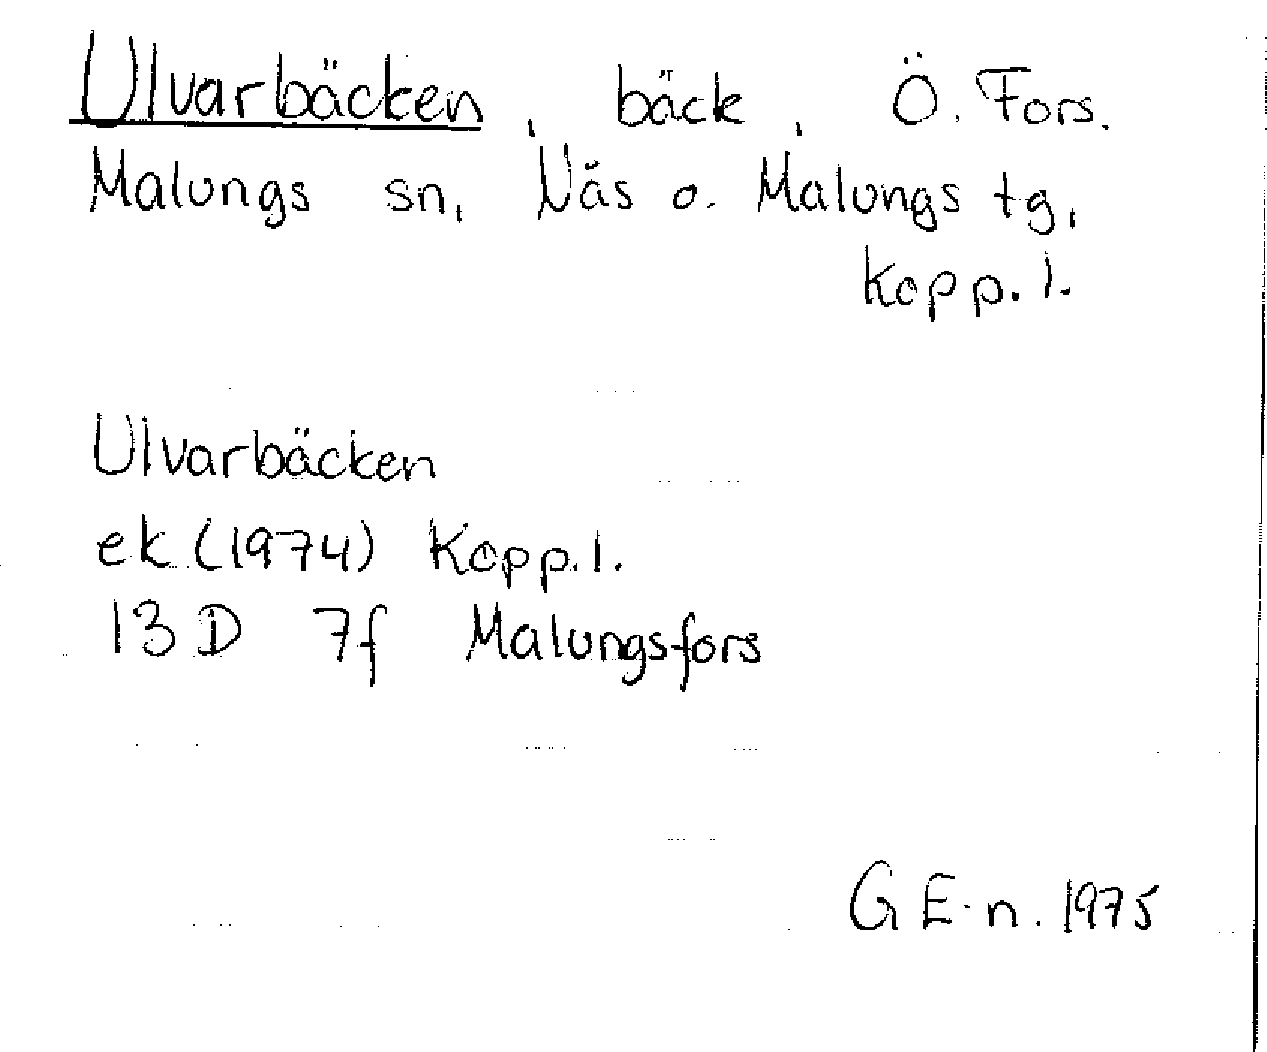 Ulvarbäcken, bäck, Ö. Fors.
Malungs sn, Näs o. Malungs tg,
Kopp. l.
Ulvarbäcken
ek (1974) Kopp. l.
13 D 7f Malungsfors
G E-n. 1975